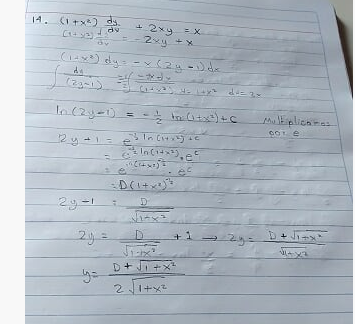 14. (1+x²) dy/dv + 2xy = x
(1+x²) dy/dv = -2xy + x
(1+x²) dy = -x(2y-1)dx
∫ dy/(2y-1) = ∫ -x dx/(1+x²) u=1+x² du=2x
ln(2y-1) = -½ ln(1+x²)+c
2y-1 = e^(-½ ln(1+x²)+c)
= e^(-½ ln(1+x²)) · e^c
= e^(ln(1+x²)^(-½)) · e^c
= D(1+x²)^(-½)
2y-1 = D/√(1+x²)
2y = D/√(1+x²) + 1 → 2y = (D+√(1+x²))/√(1+x²)
y = (D+√(1+x²))/(2√(1+x²))